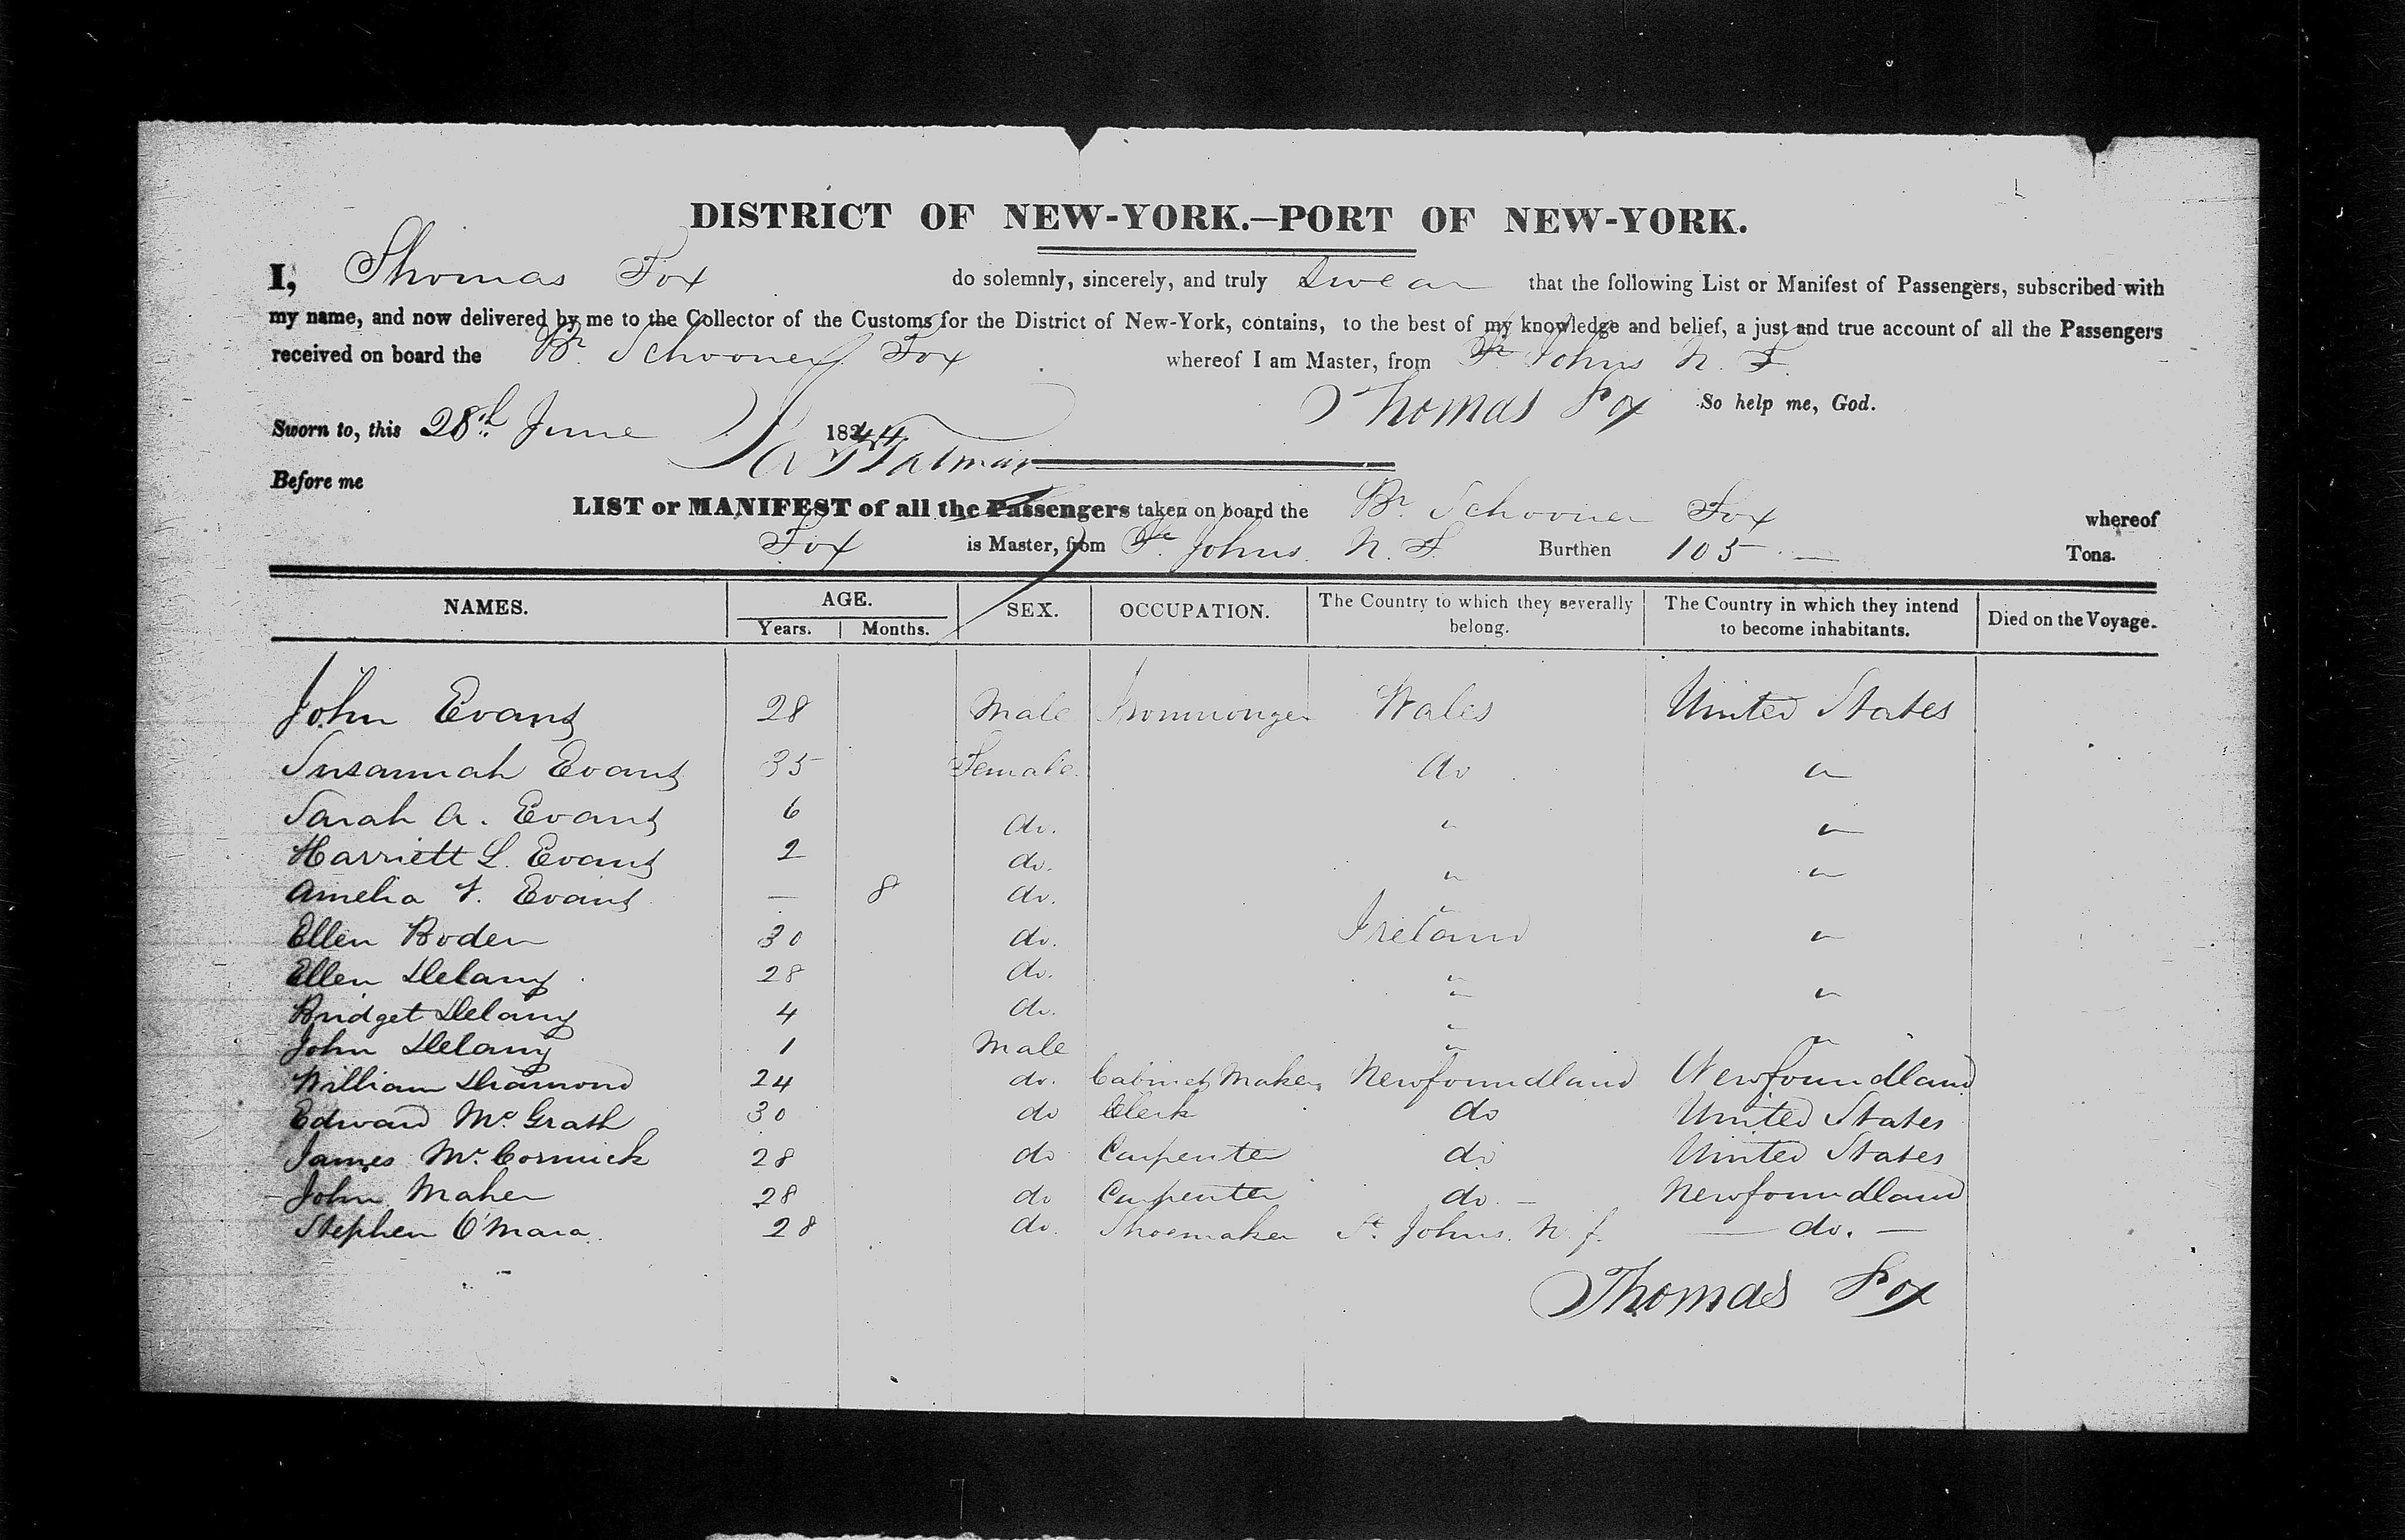 DISTRICT OF NEW-YORK.—PORT OF NEW-YORK.
I, Thomas Fox do solemnly, sincerely, and truly Swear that the following List or Manifest of Passengers, subscribed with
my name, and now delivered by me to the Collector of the Customs for the District of New-York, contains, to the best of my knowledge and belief, a just and true account of all the Passengers
received on board the Br. Schooner Fox whereof I am Master, from St. Johns N. F.
Thomas Fox So help me, God.
Sworn to, this 28th June 1844
Before me
LIST or MANIFEST of all the Passengers taken on board the Br Schooner Fox whereof
Fox is Master, from St. Johns. N. F. Burthen 105 — Tons.
NAMES. AGE. SEX. OCCUPATION. The Country to which they severally belong. The Country in which they intend to become inhabitants. Died on the Voyage.
Years. Months.
John Evans 28 Male Ironmonger Wales United States
Susannah Evans 35 Female do "
Sarah A. Evans 6 do. " "
Harriett L. Evans 2 do. " "
Amelia Evans — 8 do. "
Ellen Roden 30 do. Ireland "
Ellen Delany 28 do. "
Bridget Delany 4 do. " "
John Delany 1 Male " "
William Diamond 24 do. Cabinet Maker Newfoundland Newfoundland
Edward Mc Grath 30 do Clerk do United States
James Mc Cormick 28 do Carpenter do United States
John Maher 28 do Carpenter do. — Newfoundland
Stephen O'Mara. 28 do. Shoemaker St. Johns. N. f. — do. —
Thomas Fox